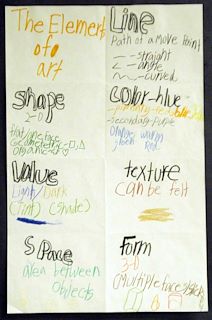 The Element
of
art
Line
Path of a move Point
straight
angle
curved
shape
2-D
Flat/one face
Geometric
organic
color-hue
Primary-
Secondary-Purple
orange warm
green Red
Value
Light/Dark
(tint) (shade)
texture
can be felt
Space
area between
Objects
Form
3-D
multiple faces/sides